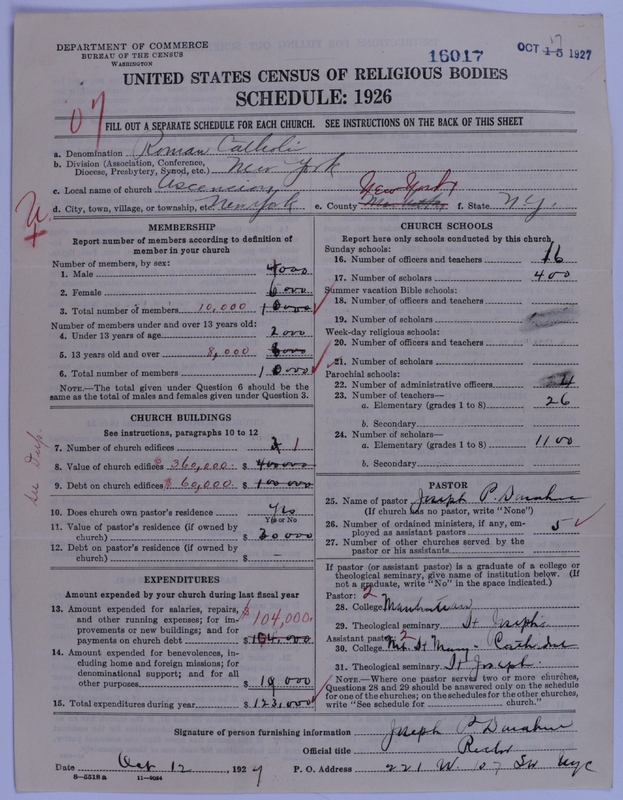 DEPARTMENT OF COMMERCE
BUREAU OF THE CENSUS
WASHINGTON
16017
OCT 15 1927
17
UNITED STATES CENSUS OF RELIGIOUS BODIES
SCHEDULE: 1926
07
FILL OUT A SEPARATE SCHEDULE FOR EACH CHURCH. SEE INSTRUCTIONS ON THE BACK OF THIS SHEET
a. Denomination Roman Catholic
b. Division (Association, Conference, Diocese, Presbytery, Synod, etc.) New York
c. Local name of church Ascension
d. City, town, village, or township, etc. New York e. County New York f. State N.Y.
MEMBERSHIP
Report number of members according to definition of
member in your church
Number of members, by sex:
1. Male 4000
2. Female 6000
3. Total number of members 10,000 10000
Number of members under and over 13 years old:
4. Under 13 years of age 2000
5. 13 years old and over 8,000 8000
6. Total number of members 10000
NOTE.—The total given under Question 6 should be the
same as the total of males and females given under Question 3.
CHURCH BUILDINGS
See instructions, paragraphs 10 to 12
7. Number of church edifices 1
8. Value of church edifices $360,000. $ 400000
9. Debt on church edifices $60,000. $ 100000
10. Does church own pastor's residence? Yes
Yes or No
11. Value of pastor's residence (if owned by
church) $ 30000
12. Debt on pastor's residence (if owned by
church) $ —
EXPENDITURES
Amount expended by your church during last fiscal year
13. Amount expended for salaries, repairs,
and other running expenses; for im-
provements or new buildings; and for
payments on church debt $104,000. $ 104,000
14. Amount expended for benevolences, in-
cluding home and foreign missions; for
denominational support; and for all
other purposes $ 19000
15. Total expenditures during year $ 123,000
CHURCH SCHOOLS
Report here only schools conducted by this church
Sunday schools:
16. Number of officers and teachers 16
17. Number of scholars 400
Summer vacation Bible schools:
18. Number of officers and teachers
19. Number of scholars
Week-day religious schools:
20. Number of officers and teachers
21. Number of scholars
Parochial schools:
22. Number of administrative officers 4
23. Number of teachers—
a. Elementary (grades 1 to 8) 26
b. Secondary
24. Number of scholars—
a. Elementary (grades 1 to 8) 1100
b. Secondary
PASTOR
25. Name of pastor Joseph P. Donahue
(If church has no pastor, write "None")
26. Number of ordained ministers, if any, em-
ployed as assistant pastors 5
27. Number of other churches served by the
pastor or his assistants
If pastor (or assistant pastor) is a graduate of a college or
theological seminary, give name of institution below. (If
not a graduate, write "No" in the space indicated.)
Pastor: 2
28. College Manhattan
29. Theological seminary St Josephs
Assistant pastor: 2
30. College Mt. St Mary - Cathedral
31. Theological seminary St Joseph
NOTE.—Where one pastor served two or more churches,
Questions 28 and 29 should be answered only on the schedule
for one of the churches; on the schedules for the other churches,
write "See schedule for church."
Signature of person furnishing information Joseph P Donahue
Official title Rector
Date Oct 12, 1927 P. O. Address 221 W. 107 St NYC
8—5518a 11—9024